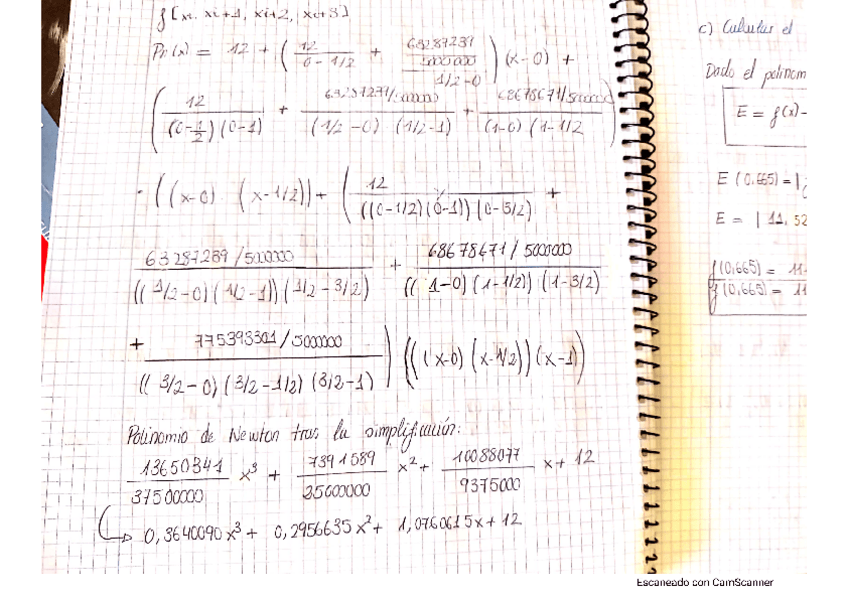 f [xi, xi+1, xi+2, xi+3]
Pn(x) = 12 + ( 12 / (0 - 1/2) + (63287239 / 5000000) / (1/2-0) ) (x-0) +
( 12 / ((0-1/2)(0-1)) + (63287239/5000000) / ((1/2-0) (1/2-1)) + (68678671/5000000) / ((1-0) (1-1/2 )
· ((x-0) (x-1/2)) + ( 12 / (((0-1/2)(0-1)) (0-3/2)) +
63287239/5000000 / ((1/2-0)(1/2-1))(1/2-3/2) + 68678671/5000000 / ((1-0)(1-1/2))(1-3/2)
+ 775393301/5000000 / ((3/2-0)(3/2-1/2)(3/2-1) ) (((x-0)(x-1/2))(x-1))
Polinomio de Newton tras la simplificación:
13650341/37500000 x³ + 7391589/25000000 x² + 10088077/9375000 x + 12
↳ 0,3640090x³ + 0,2956635x² + 1,0760615x + 12
c) Calcular el
Dado el polinom
E = f(x) -
E (0,665) = |
E = | 11,52
f(0,665) = 11
f(0,665) = 11
Escaneado con CamScanner